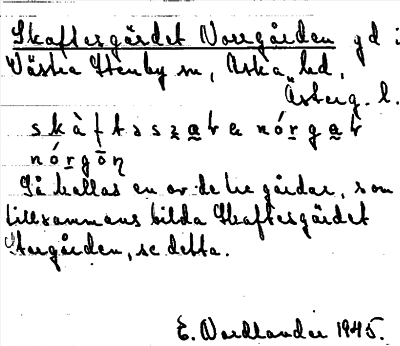 Skaftesgärdet Norrgården gd i
Västra Stenby sn, Aska hd,
Österg. l.
Så kallas en av de tre gårdar, som
tillsammans bilda Skaftesgärdet
Storgården, se detta.
E. Nordlander 1945.